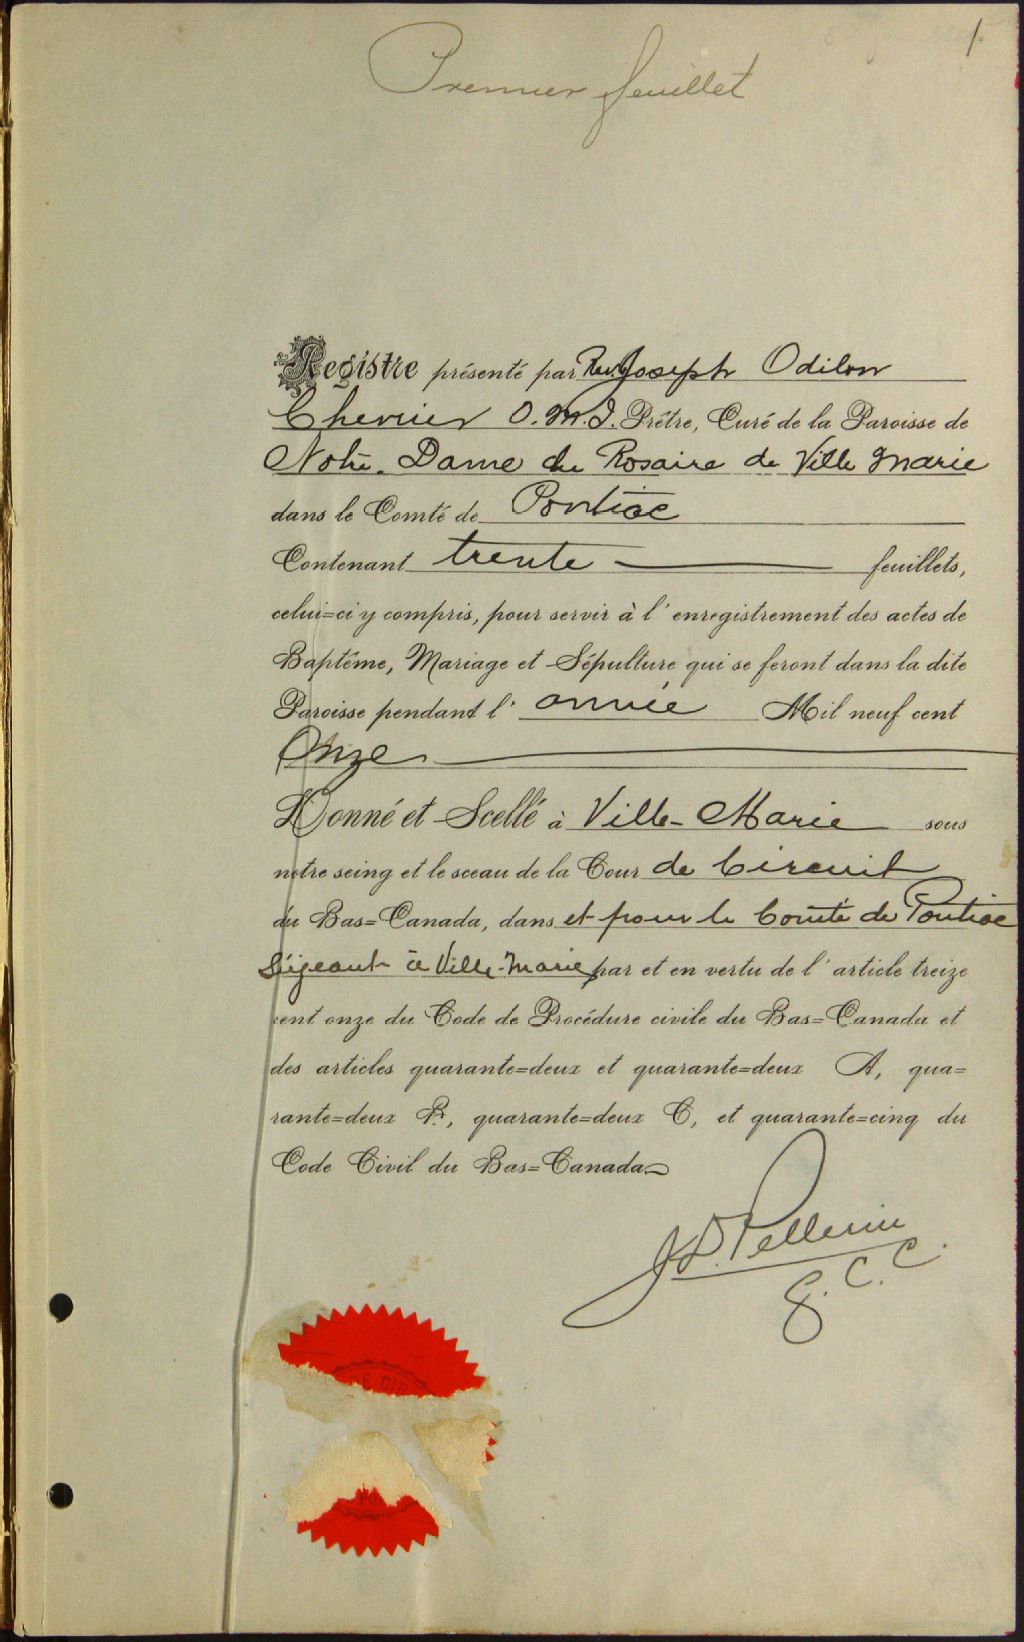 1
Premier feuillet
Registre présenté par Rev. Joseph Odilon
Chevrier O.M.I. Prêtre, Curé de la Paroisse de
Notre-Dame du Rosaire de Ville Marie
dans le Comté de Pontiac
Contenant trente feuillets,
celui=ci y compris, pour servir à l'enregistrement des actes de
Baptême, Mariage et Sépulture qui se feront dans la dite
Paroisse pendant l'année Mil neuf cent
Onze
Donné et Scellé à Ville-Marie sous
notre seing et le sceau de la Cour de Circuit
du Bas=Canada, dans et pour le Comté de Pontiac
Siégeant à Ville-Marie par et en vertu de l'article treize
cent onze du Code de Procédure civile du Bas=Canada et
des articles quarante=deux et quarante=deux A, qua=
rante=deux B, quarante=deux C, et quarante=cinq du
Code Civil du Bas=Canada
J.D. Pellerin
G.C.C.
DE CIR